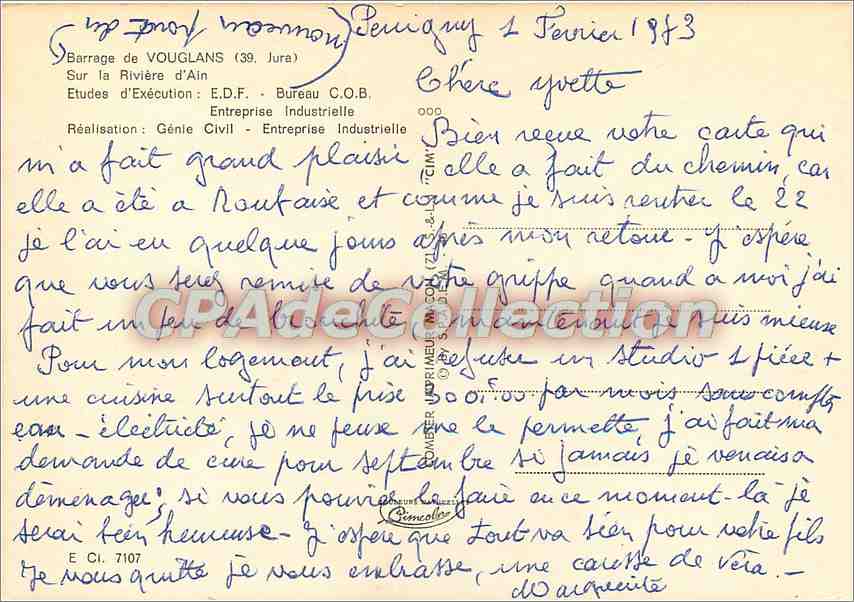 (nouveau pont du
Perrigny 1 Fevrier 1973
Barrage de VOUGLANS (39. Jura)
Sur la Rivière d'Ain
Etudes d'Exécution : E.D.F. - Bureau C.O.B.
Entreprise Industrielle
Réalisation : Génie Civil - Entreprise Industrielle
Chère Yvette
Bien reçue votre carte qui
m'a fait grand plaisir elle a fait du chemin, car
elle a été a et comme je suis rentrer le 22
je l'ai eu quelque jours après mon retour - J'espére
que vous serez remise de votre grippe quand a moi j'ai
fait un peu de bronchite, maintenant je suis mieuse
Pour mon logement, j'ai refuser un studio 1 pièce +
une cuisine surtout le prise 300F00 par mois sans compter
eau - électricité, je ne peuse me le permettre, j'ai fait ma
demande de cure pour septembre si jamais je venaise
déménager, si vous pouvrez le faire en ce moment-là je
serai bien heureuse - J'espère que tout va bien pour votre fils
Je vous quitte je vous embrasse, une caresse de Véra. -
Marguerite
E Ci. 7107
COMBIER IMPRIMEUR MACON (71) S.&-L. "CIM"
© by S.P.A.D.E.M.
Cimcolor
CPAdeCollection